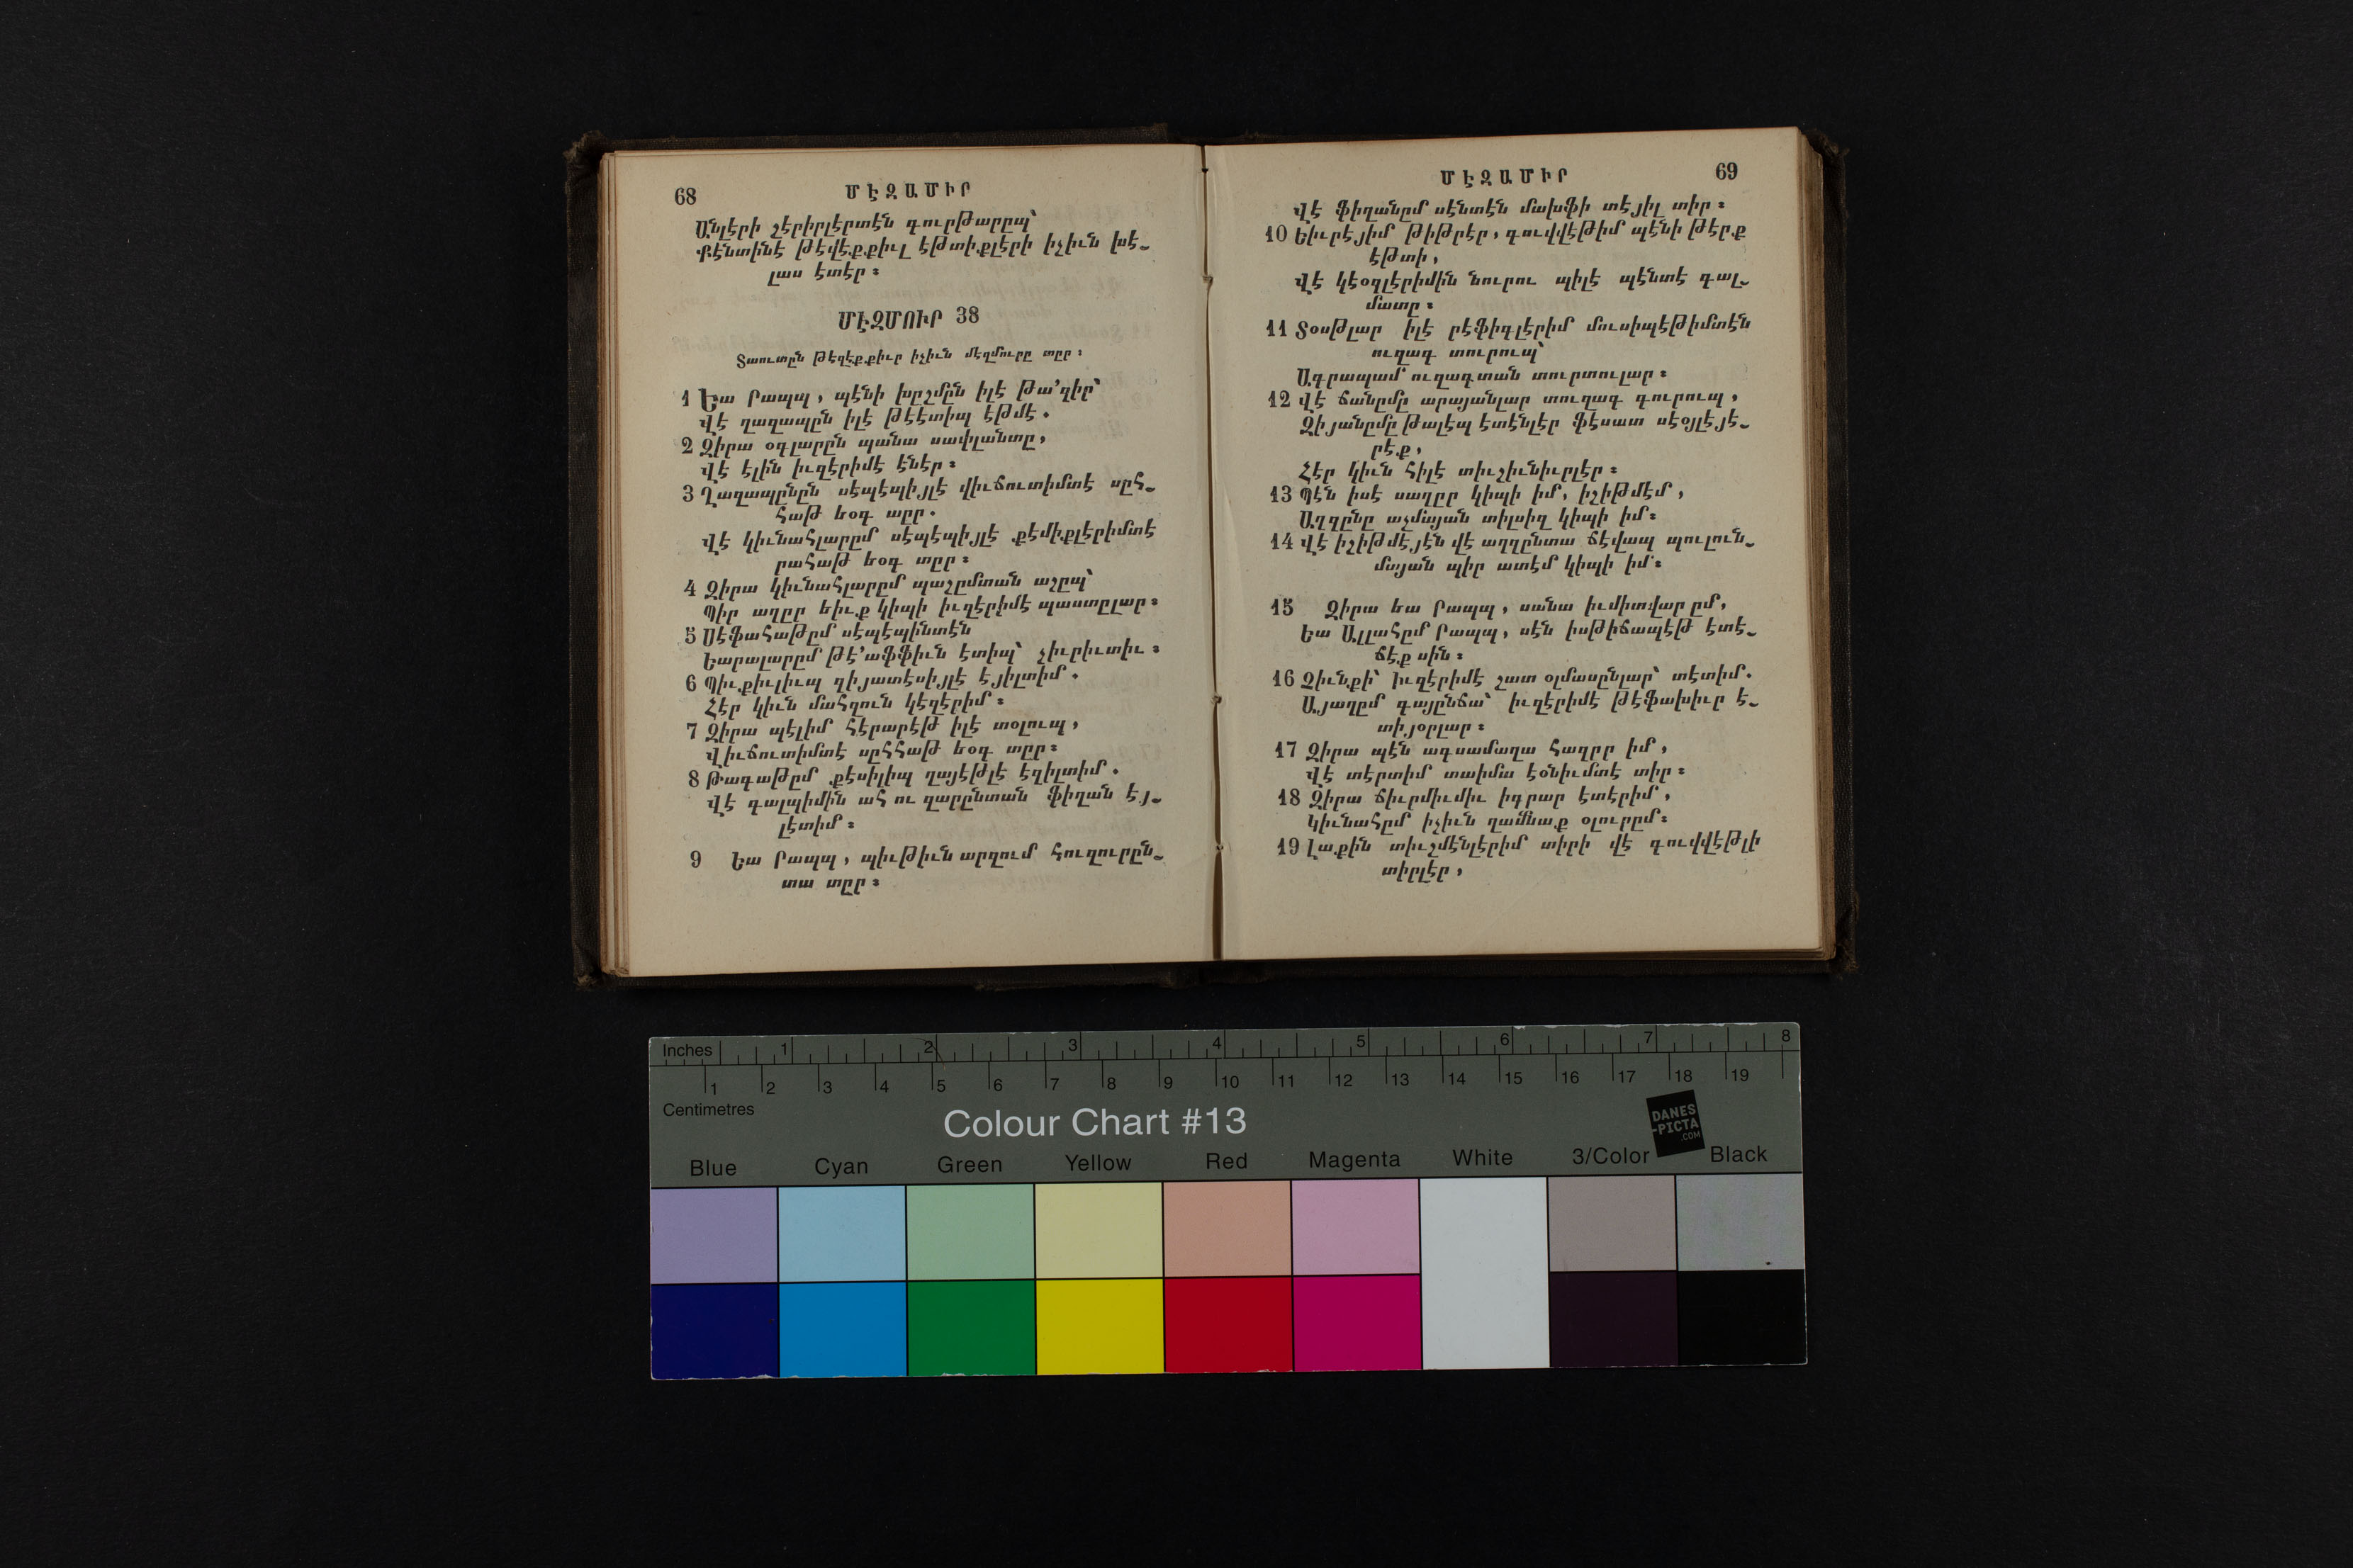 68 ՄԷԶԱՄԻՐ
Անլէրի շէրիրլէրտէն գուրթարըպ՝
Քէնտինէ թէվէքքիւլ էթտիքլէրի իչիւն խէ֊
լաս էտէր։
ՄԷԶՄՈՒՐ 38
Տաուտըն թէզէքքիւր իչիւն մէզմուրը տըր։
1 Եա Րապպ, պէնի խըշմըն իլէ թա՚զիր՝
Վէ ղազապըն իլէ թէէտիպ էթմէ.
2 Զիրա օգլարըն պանա սափլանտը,
Վէ էլին իւզէրիմէ էնէր։
3 Ղազապընըն սէպէպիյլէ վիւճուտիմտէ սըհ֊
հաթ եօգ տըր.
Վէ կիւնահլարըմ սէպէպիյլէ քէմիքլէրիմտէ
րահաթ եօգ տըր։
4 Զիրա կիւնահլարըմ պաշըմտան աշըպ՝
Պիր աղըր եիւք կիպի իւզէրիմէ պաստըլար։
5 Սէֆահաթըմ սէպէպինտէն
Եարալարըմ թէ՚աֆֆիւն էտիպ՝ չիւրիւտիւ։
6 Պիւքիւլիւպ զիյատէսիյլէ էյիլտիմ.
Հէր կիւն մահզուն կէզէրիմ։
7 Զիրա պէլիմ հէրարէթ իլէ տօլուպ,
Վիւճուտիմտէ սըհհաթ եօգ տըր։
8 Թագաթըմ քէսիլիպ ղայէթլէ էզիլտիմ.
Վէ գալպիմին ահ ու զարընտան ֆիղան էյ֊
լէտիմ։
9 Եա Րապպ, պիւթիւն արզում հուզուրըն֊
տա տըր։
ՄԷԶԱՄԻՐ 69
Վէ ֆիղանըմ սէնտէն մախֆի տէյիլ տիր։
10 Եիւրէյիմ թիթրէր, գուվվէթիմ պէնի թէրք
էթտի,
Վէ կէօզլէրիմին նուրու պիլէ պէնտէ գալ֊
մատը։
11 Տօսթլար իլէ րէֆիգլէրիմ մուսիպէթիմտէն
ուզագ տուրուպ՝
Ագրապամ ուզագտան տուրտուլար։
12 Վէ ճանըմը արայանլար տուզագ գուրուպ,
Զիյանըմը թալէպ էտէնլէր ֆէսատ սէօյլէյէ֊
րէք,
Հէր կիւն հիլէ տիւշիւնիւրլէր։
13 Պէն իսէ սաղըր կիպի իմ, իշիթմէմ,
Աղզընը աչմայան տիլսիզ կիպի իմ։
14 Վէ իշիթմէյէն վէ աղզընտա ճէվապ պուլուն֊
մայան պիր ատէմ կիպի իմ։
15 Զիրա եա Րապպ, սանա իւմիտվար ըմ,
Եա Ալլահըմ Րապպ, սէն իսթիճապէթ էտէ֊
ճէք սին։
16 Չիւնքի՝ Իւզէրիմէ շատ օլմասընլար՝ տէտիմ.
Այաղըմ գայընճա՝ իւզէրիմէ թէֆախիւր է֊
տիյօրլար։
17 Զիրա պէն ագսամաղա հազըր իմ,
Վէ տէրտիմ տաիմա էօնիւմտէ տիր։
18 Զիրա ճիւրմիւմիւ իգրար էտէրիմ,
Կիւնահըմ իչիւն ղամնաք օլուրըմ։
19 Լաքին տիւշմէնլէրիմ տիրի վէ գուվվէթլի
տիրլէր,
Inches 1 2 3 4 5 6 7 8
1 2 3 4 5 6 7 8 9 10 11 12 13 14 15 16 17 18 19
Centimetres
Colour Chart #13
DANES
-PICTA
.COM
Blue Cyan Green Yellow Red Magenta White 3/Color Black